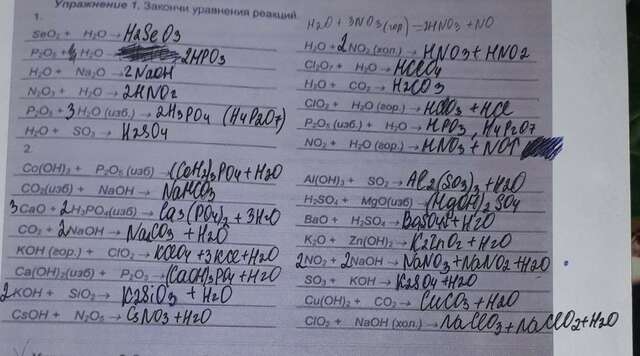 Упражнение 1. Закончи уравнения реакций.
1.
H2O + 3NO2 (гор) = 2HNO3 + NO
SeO2 + H2O → H2SeO3
P2O5 + H2O → 2HPO3
H2O + Na2O → 2NaOH
N2O3 + H2O → 2HNO2
P2O5 + 3H2O (изб) → 2H3PO4 (H4P2O7)
H2O + SO3 → H2SO4
H2O + 2NO2 (хол.) → HNO3 + HNO2
Cl2O7 + H2O → HClO4
H2O + CO2 → H2CO3
ClO2 + H2O (гор.) → HClO3 + HCl
P2O5 (изб.) + H2O → HPO3, H4P2O7
NO2 + H2O (гор.) → HNO3 + NO↑
2.
Co(OH)2 + P2O5 (изб) → (CoH2)3PO4 + H2O
CO2 (изб) + NaOH → NaHCO3
3CaO + 2H3PO4 (изб) → Ca3(PO4)2 + 3H2O
CO2 + 2NaOH → Na2CO3 + H2O
KOH (гор.) + ClO2 → KClO3 + 3KCl + H2O
Ca(OH)2 (изб) + P2O5 → (CaOH)3PO4 + H2O
2KOH + SiO2 → K2SiO3 + H2O
CsOH + N2O5 → CsNO3 + H2O
Al(OH)3 + SO2 → Al2(SO3)3 + H2O
H2SO4 + MgO (изб) → (MgOH)2SO4
BaO + H2SO4 → BaSO4 + H2O
K2O + Zn(OH)2 → K2ZnO2 + H2O
2NO2 + 2NaOH → NaNO3 + NaNO2 + H2O
SO3 + KOH → K2SO4 + H2O
Cu(OH)2 + CO2 → CuCO3 + H2O
ClO2 + NaOH (хол.) → NaClO3 + NaClO2 + H2O